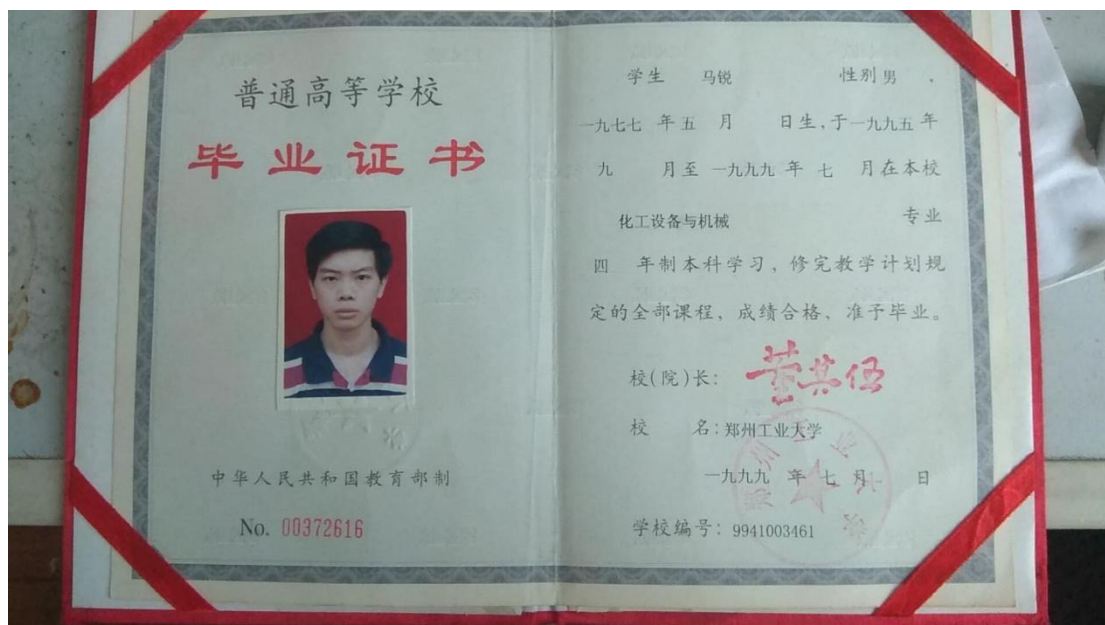 普通高等学校
毕业证书
中华人民共和国教育部制
No. 00372616
学生 马锐 性别 男 、
一九七七 年 五 月 日生,于一九九五 年
九 月至 一九九九 年 七 月在本校
化工设备与机械 专业
四 年制本科学习，修完教学计划规
定的全部课程，成绩合格，准予毕业。
校(院)长: 董其伍
校 名: 郑州工业大学
一九九九 年 七 月 日
学校编号: 9941003461